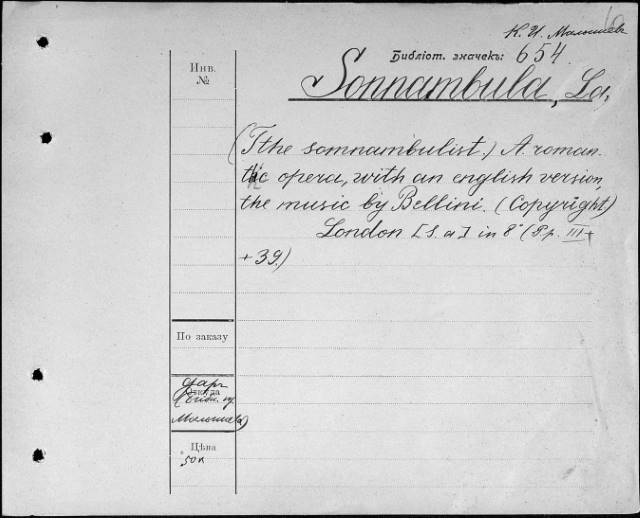 К. И. Малышев
Инв.
№
Библіот. значекъ: 654.
Sonnambula, La,
(The somnambulist.) A roman
tic opera, with an english version,
the music by Bellini. (Copyright)
London [S. a] in 8° (8 p. III +
+ 39.)
По заказу
даръ
Откуда
Малышева)
Цѣна
50к